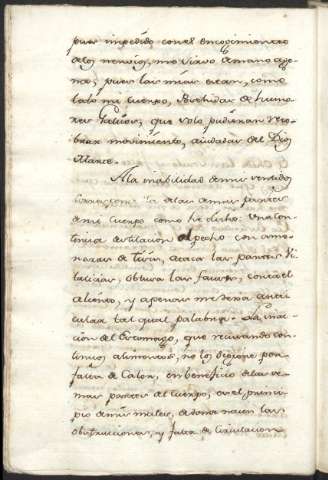 pues impedido con el encogimiento
de los nervios, me sirvo de mano age-
na; pues las mias estan, como
todo mi cuerpo, de humo-
res; que solo pudieran reco-
brar movimiento, ayudadas del Dios
Marte.
A la inabilidad de mis sentidos,
a las demas partes
de mi cuerpo como he dicho: Una con-
tinua destilacion al pecho con ame-
nazas de Tisis, ataca las partes Vi-
tales, obtura las fauces, corta el
aliento, y apenas me dexa arti-
cular tal qual palabra. La inac-
cion del Estomago, que recivendo con-
tinuos alimentos, no los digiere por
falta de Calor, en beneficio de las de-
mas partes del cuerpo, es el princi-
pio de mis males, de donde nacen las
obstrucciones, y falta de Circulacion